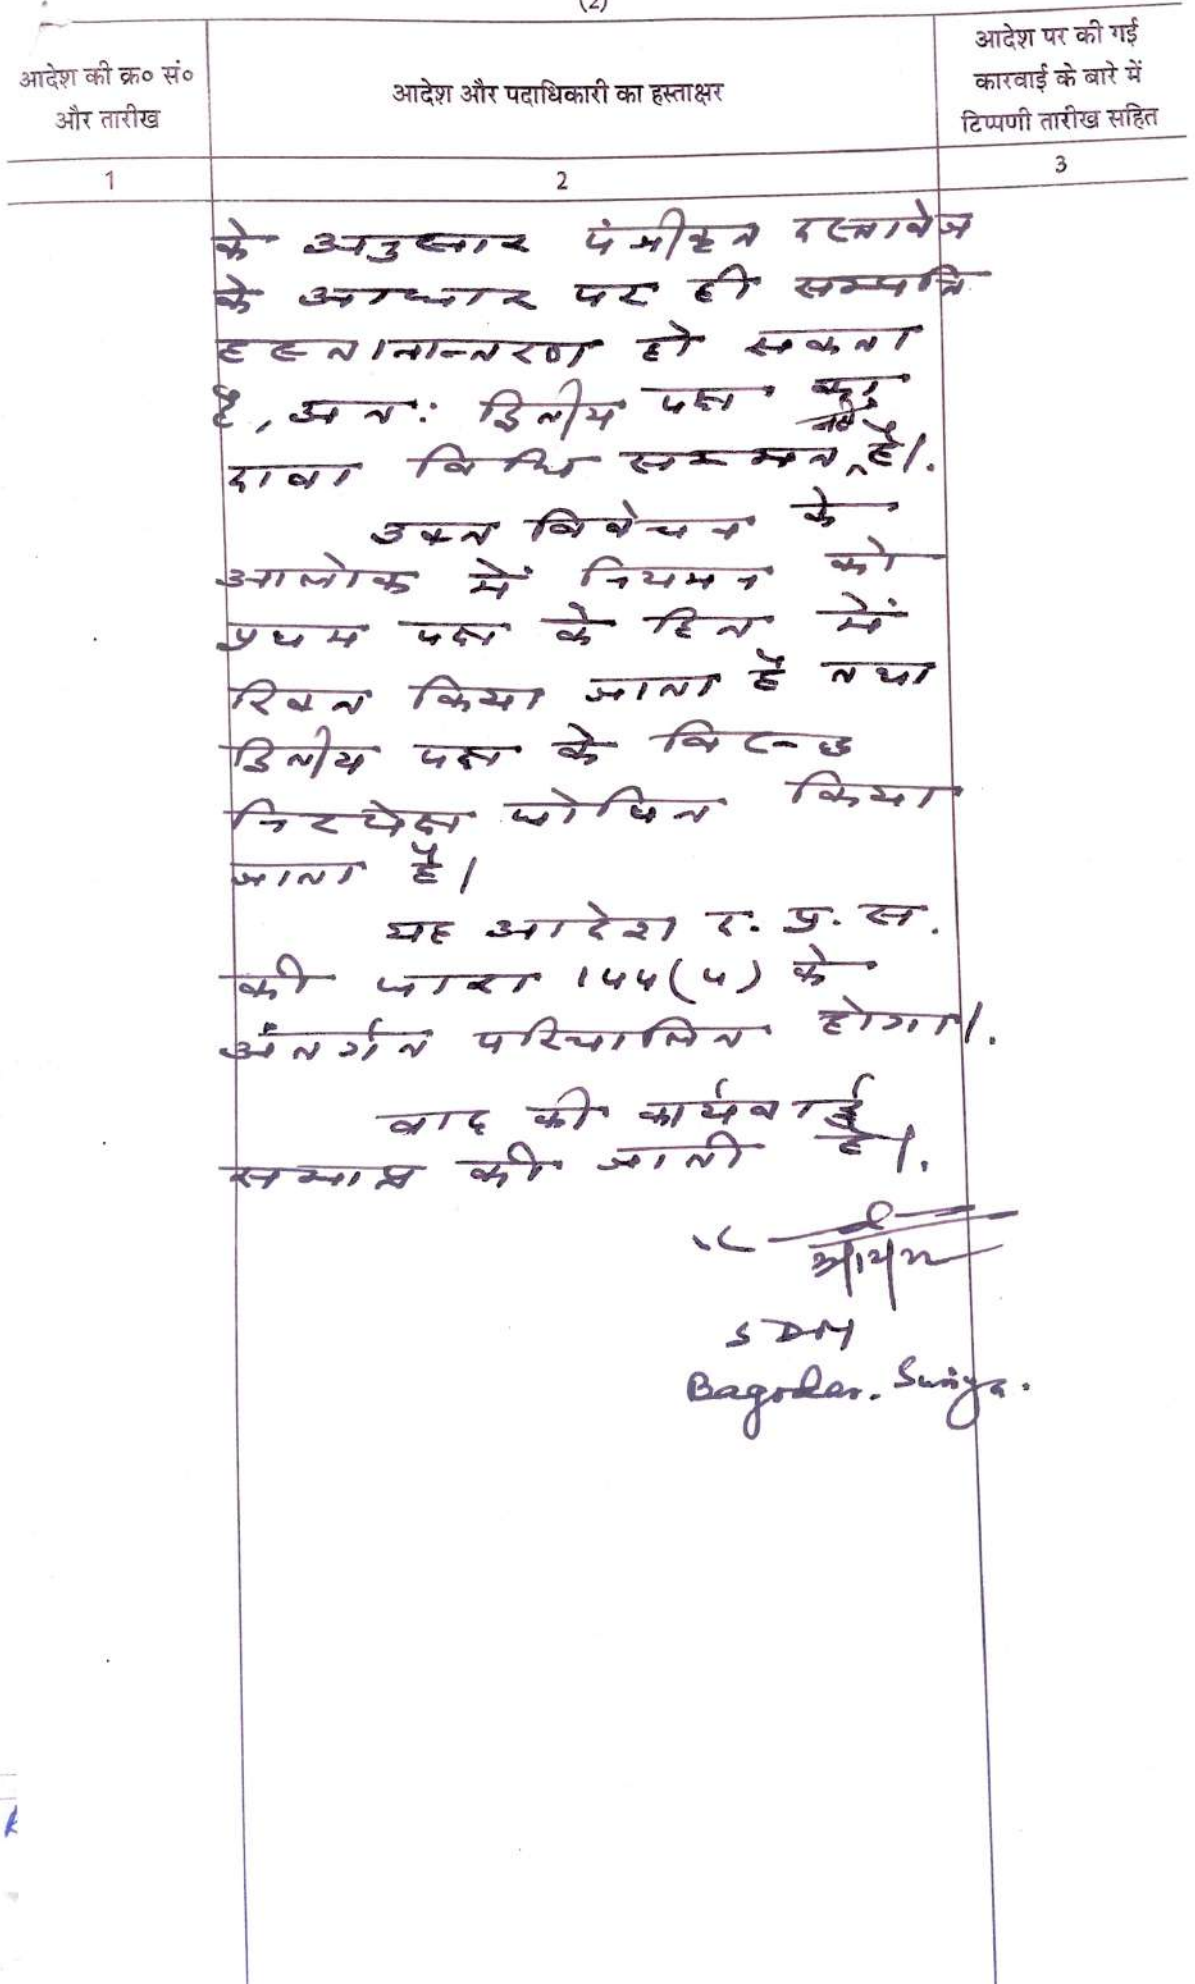 (2)
आदेश की क्र० सं०
और तारीख
आदेश और पदाधिकारी का हस्ताक्षर
आदेश पर की गई
कारवाई के बारे में
टिप्पणी तारीख सहित
1
2
3
के अनुसार पंजीकृत दस्तावेज
के आधार पर ही सम्पत्ति
हस्तानान्तरण हो सकता
है, अतः द्वितीय पक्ष का
नहीं
दावा विधि सम्मत है।
उक्त विवेचन के
आलोक में नियमन को
प्रथम पक्ष के हित में
रिक्त किया जाता है तथा
द्वितीय पक्ष के विरुद्ध
निरपेक्ष घोषित किया
जाता है।
यह आदेश द. प्र. स.
की धारा 144(4) के
अंतर्गत परिचालित होगा।
वाद की कार्यवाई
समाप्त की जाती है।
SDM
Bagodar. Suriya.